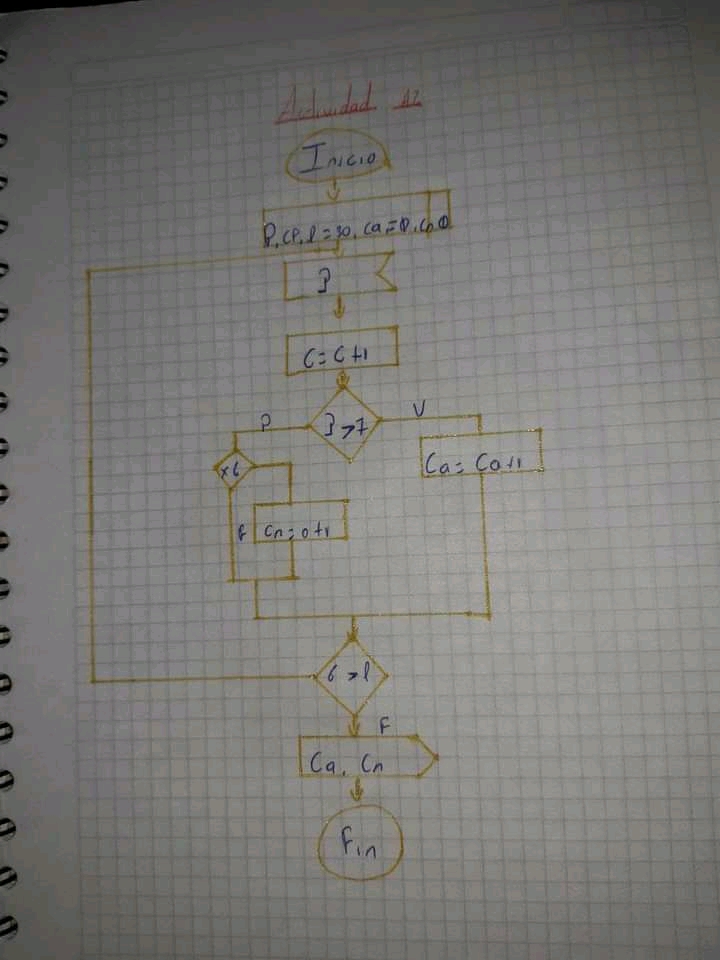 Actividad 12
Inicio
P, CP, l = 30, Ca = 0, Cn 0
P
C = C + 1
P > 7
V
Ca = Ca + 1
Cn = 0 + 1
F
Ca, Cn
Fin